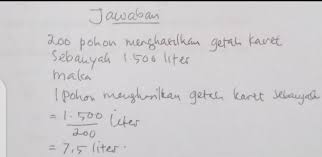 Jawaban
200 pohon menghasilkan getah karet
Sebanyak 1.500 liter
maka
1 pohon menghasilkan getah karet sebanyak
= 1.500 liter
200
= 7,5 liter.